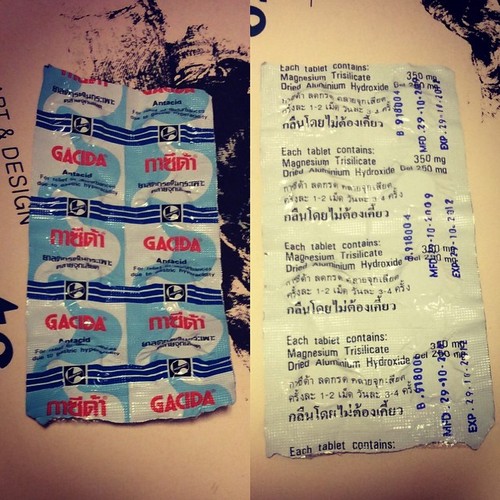 ART & DESIGN
Antacid
GACIDA
Antacid
กาซีด้า
ยาลดกรดในกระเพาะ
คลายจุกเสียด
กาซีด้า
GACIDA
Antacid
GACIDA
Antacid
กาซีด้า
กาซีด้า
GACIDA
Each tablet contains:
Magnesium Trisilicate 350 mg
Dried Aluminium Hydroxide Gel 250 mg
กาซีด้า ลดกรด คลายจุกเสียด
ครั้งละ 1-2 เม็ด วันละ 3-4 ครั้ง
กลืนโดยไม่ต้องเคี้ยว
B.918004
MFD.29-10-2009
EXP.29-10-2012
Each tablet contains:
Magnesium Trisilicate 350 mg
Dried Aluminium Hydroxide Gel 250 mg
กาซีด้า ลดกรด คลายจุกเสียด
ครั้งละ 1-2 เม็ด วันละ 3-4 ครั้ง
กลืนโดยไม่ต้องเคี้ยว
B.918004
MFD.29-10-2009
EXP.29-10-2012
Each tablet contains:
Magnesium Trisilicate 350 mg
Dried Aluminium Hydroxide Gel 250 mg
กาซีด้า ลดกรด คลายจุกเสียด
ครั้งละ 1-2 เม็ด วันละ 3-4 ครั้ง
กลืนโดยไม่ต้องเคี้ยว
Each tablet contains:
Magnesium Trisilicate 350 mg
Dried Aluminium Hydroxide Gel 250 mg
กาซีด้า ลดกรด คลายจุกเสียด
ครั้งละ 1-2 เม็ด วันละ 3-4 ครั้ง
กลืนโดยไม่ต้องเคี้ยว
B.918004
MFD.29-10-2009
EXP.29-10-2012
Each tablet contains: